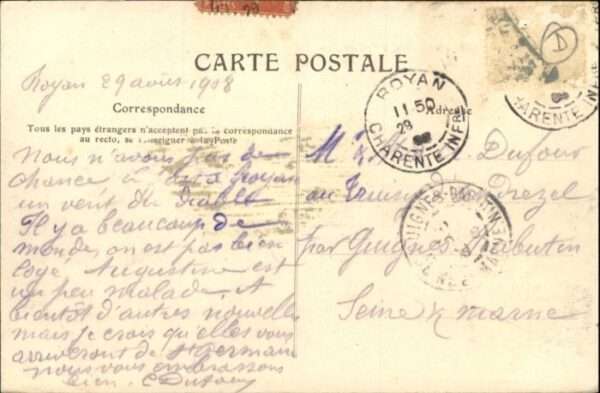 CARTE POSTALE
Royan 29 août 1908
Correspondance
Adresse
Tous les pays étrangers n'acceptent pas la correspondance
au recto, se renseigner à la Poste
Nous n'avons pas de
chance à Royan
un vent du Diable
Il y a beaucoup de
monde, on est pas bien
logé Augustine est
un peu malade, A
bientôt d'autres nouvelles
mais je crois qu'elles vous
arriveront de St Germain
nous vous embrassons
bien. C Dufour
ROYAN
11 50
29
CHARENTE INFRE
D
CHARENTE INFRE
M Dufour
au Drezel
par Guignes-Rabutin
Seine & Marne
GUIGNES-RABUTIN